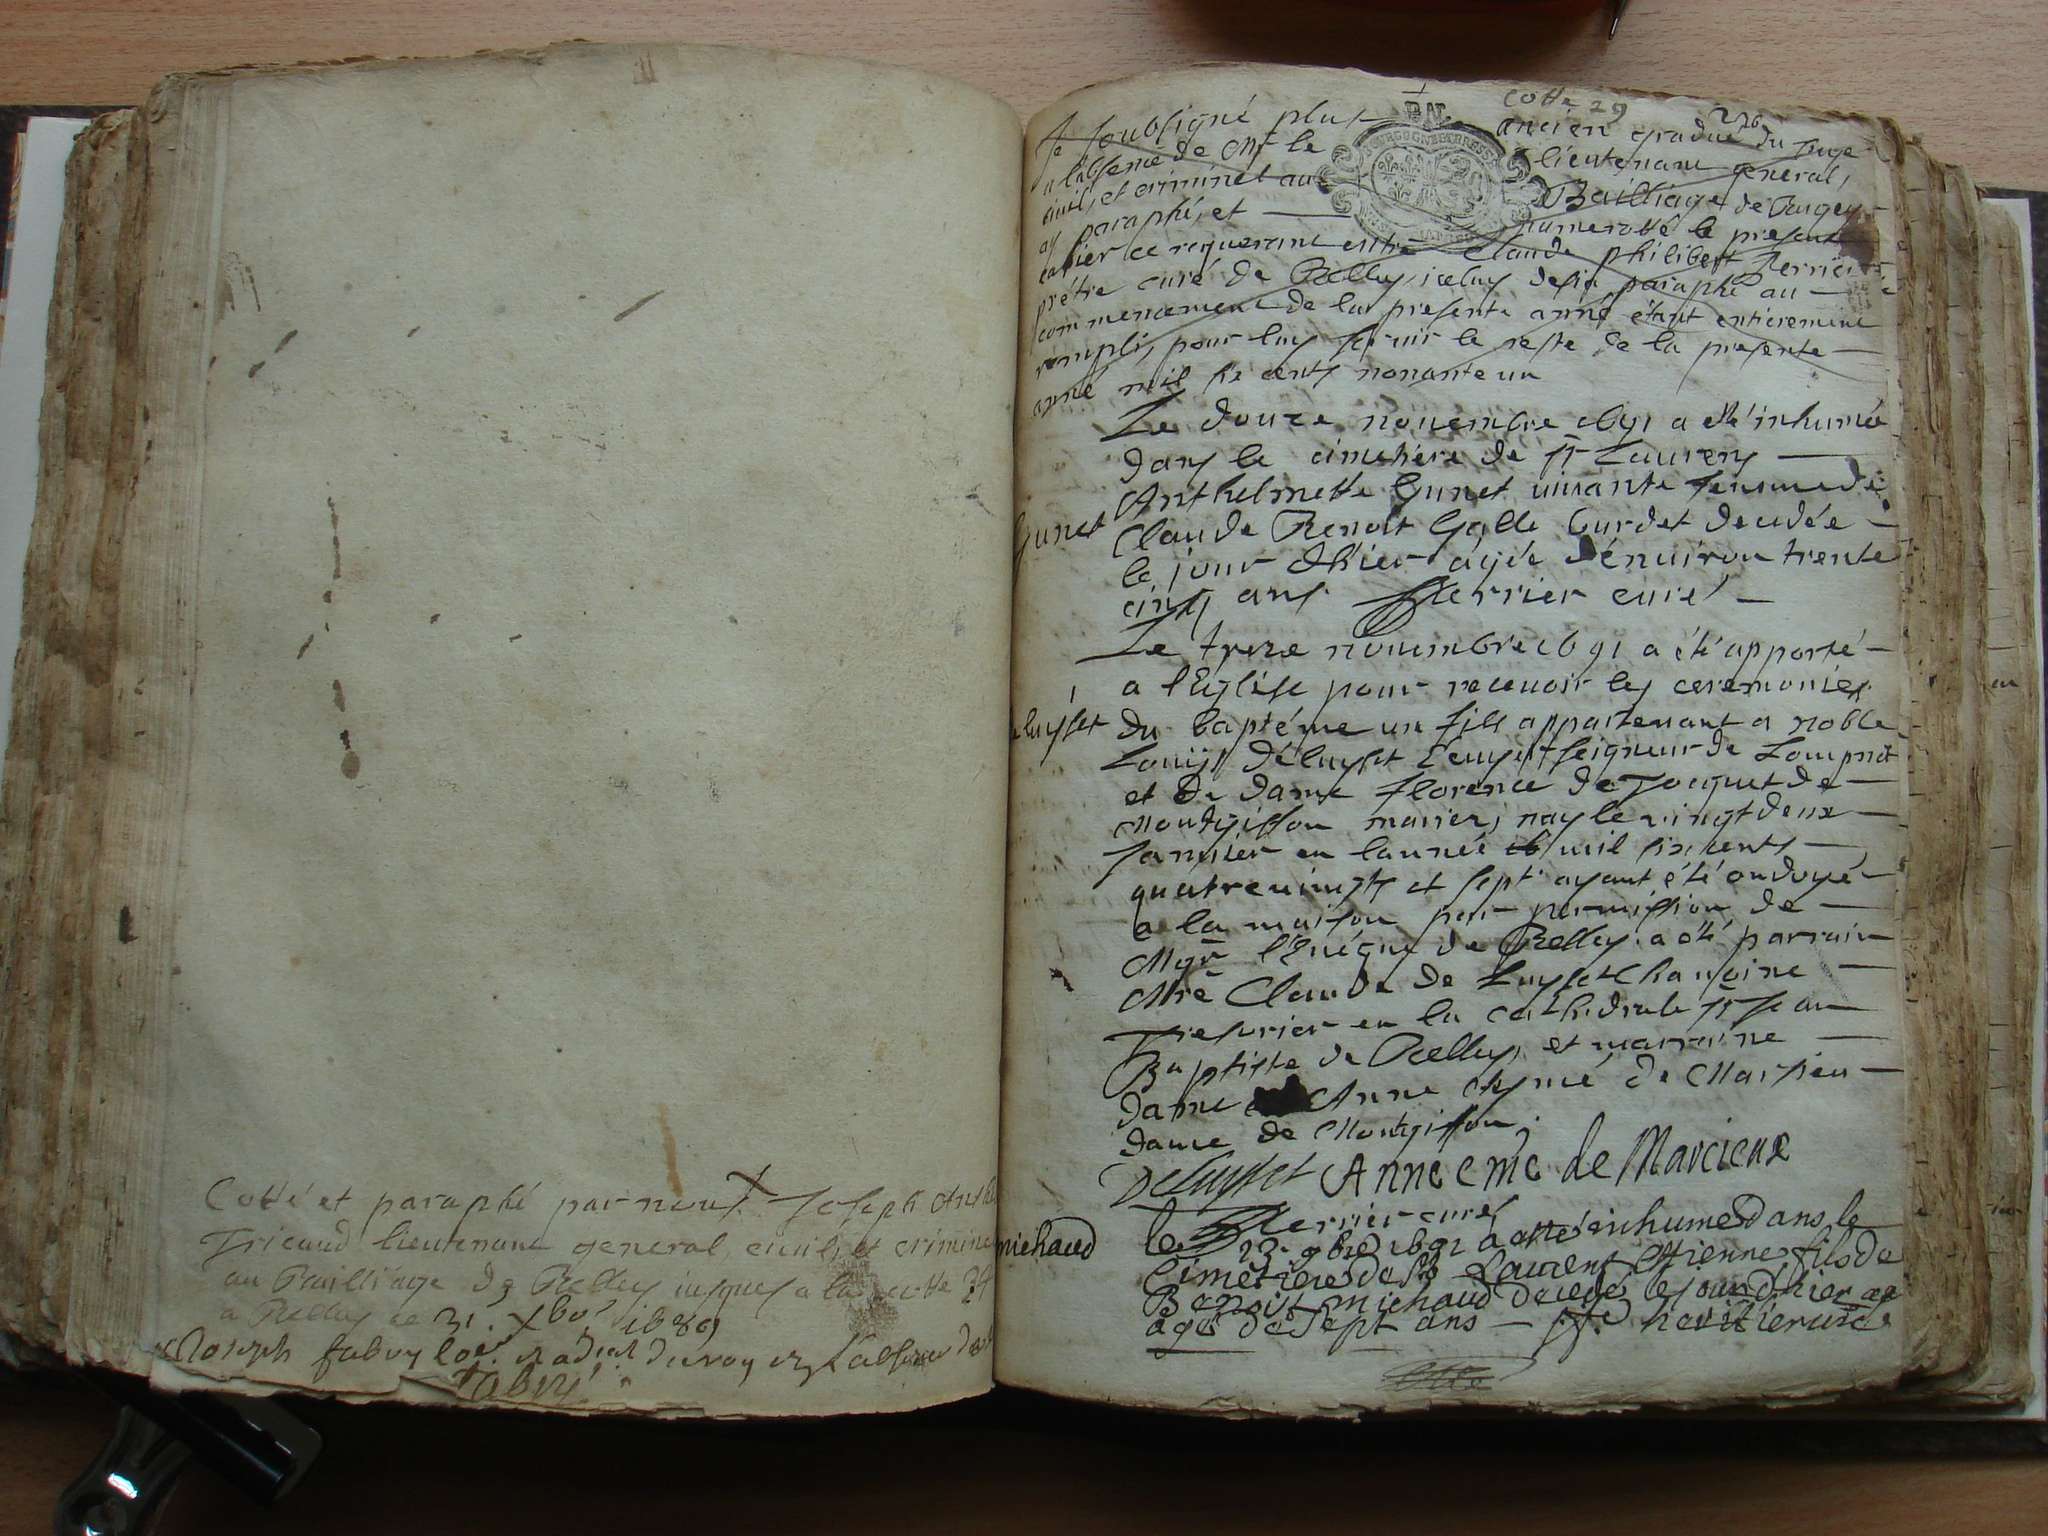 Cotté et paraphé par nous Joseph Anth
Tricaud lieutenant general ciuil, et crimine
au Bailliage de Belley iusques a la cotte 34
a Belley ce 31. xbre 1689
Joseph fabry
fabry
cotte 29
276
Je soubsigné plus ancien gradué du siege
a labsence de Mr le lieutenant general,
ciuil, et criminel au Bailliage de Bugey
ay paraphé, et numerotté le present
cahier ce requerant Claude philibert Ferrier
prétre curé de Belley, iceluy desia paraphé au
commencement de la presente anné étant entierement
rempli, pour luy seruir le reste de la presente
anné mil six cents nonante un
Le douze nouembre 1691 a esté inhumée
dans le cimetiére de St Laurens
Gunet
Anthelmette Gunet uiuante femme de
Claude Benoit Galle burdet decedée
le jour d'hier agée d'énuiron trente
cinq ans Ferrier curé
Le treze nouembre 1691 a été apporté
a l'Eglise pour receuoir les ceremonies
Deluyset
du baptéme un fils appartenant a noble
Louys Déluyset Ecuyer seigneur de Lompnat
et de dame florence de Jouquet de
Montgisson mariez, nay le uingt deux
Januier en lannée mil six cents
quatre uingts et sept ayant été ondoyé
a la maison par permission de
Mgr l'Euéque de Belley. a été parrain
Mre Claude de Luyset Chanoine
Tresorier en la cathedrale St Jean
Baptiste de Belley, et marraine
dame Anne Aymé de Marsieu
dame de Montgisson.
Deluyset Anne emé de Marcieux
Ferrier curé
michaud
le 23. 9bre 1691 a esté inhumé dans le
Cimetiere de St Laurent Ettienne fils de
Benoist michaud decedé le jour d'hier
agé de sept ans